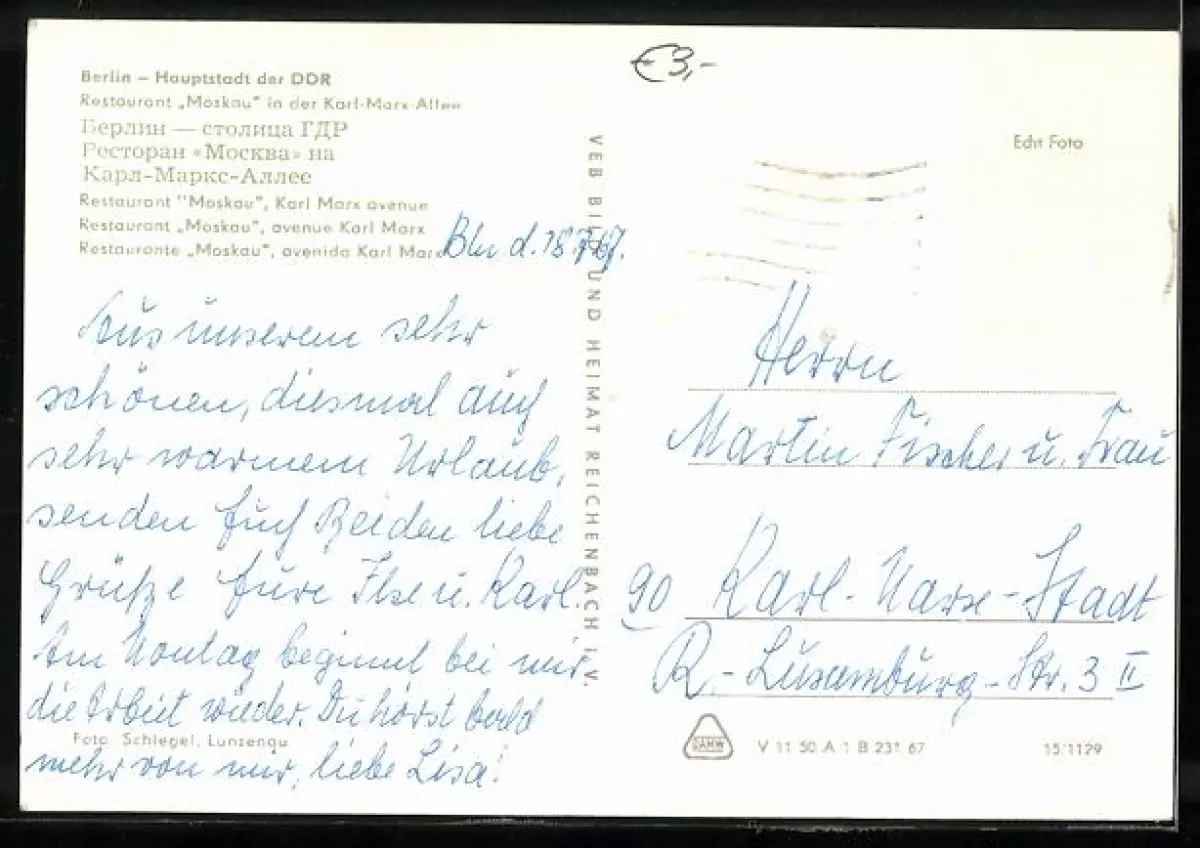 €3,-
Berlin – Hauptstadt der DDR
Restaurant „Moskau" in der Karl-Marx-Allee
Берлин — столица ГДР
Ресторан «Москва» на
Карл-Маркс-Аллее
Restaurant "Moskau", Karl Marx avenue
Restaurant „Moskau", avenue Karl Marx
Restaurante „Moskau", avenida Karl Marx
Bln d. 18.7.67.
Aus unserem sehr
schönen, diesmal auch
sehr warmem Urlaub,
senden Euch Beiden liebe
Grüße Eure Ilse u. Karl.
Am Montag beginnt bei mir
die Arbeit wieder. Du hörst bald
mehr von mir, liebe Lisa!
Foto Schlegel, Lunzenau
VEB BILD UND HEIMAT REICHENBACH i. V.
Echt Foto
Herrn
Martin Fischer u. Frau
90 Karl-Marx-Stadt
R.-Luxemburg-Str. 3 II
V 11 50 A 1 B 231 67
15/1129